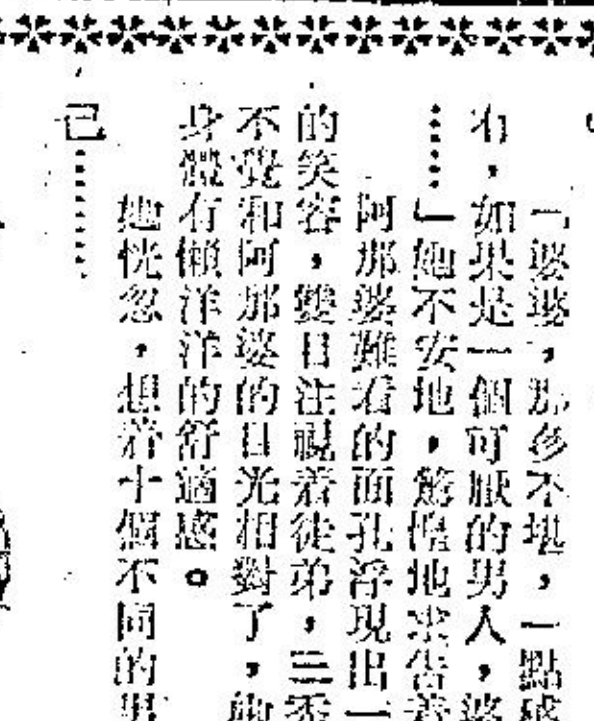 「婆婆，那多不堪，一點
有，如果是一個可厭的男人，婆
……」她不安地，驚惶地求告着
阿那婆難看的面孔浮現出一
的笑容，雙目注視着徒弟，三
不覺和阿那婆的目光相對了，她
身體有懶洋洋的舒適感。
她恍忽，想着十個不同的男
己……